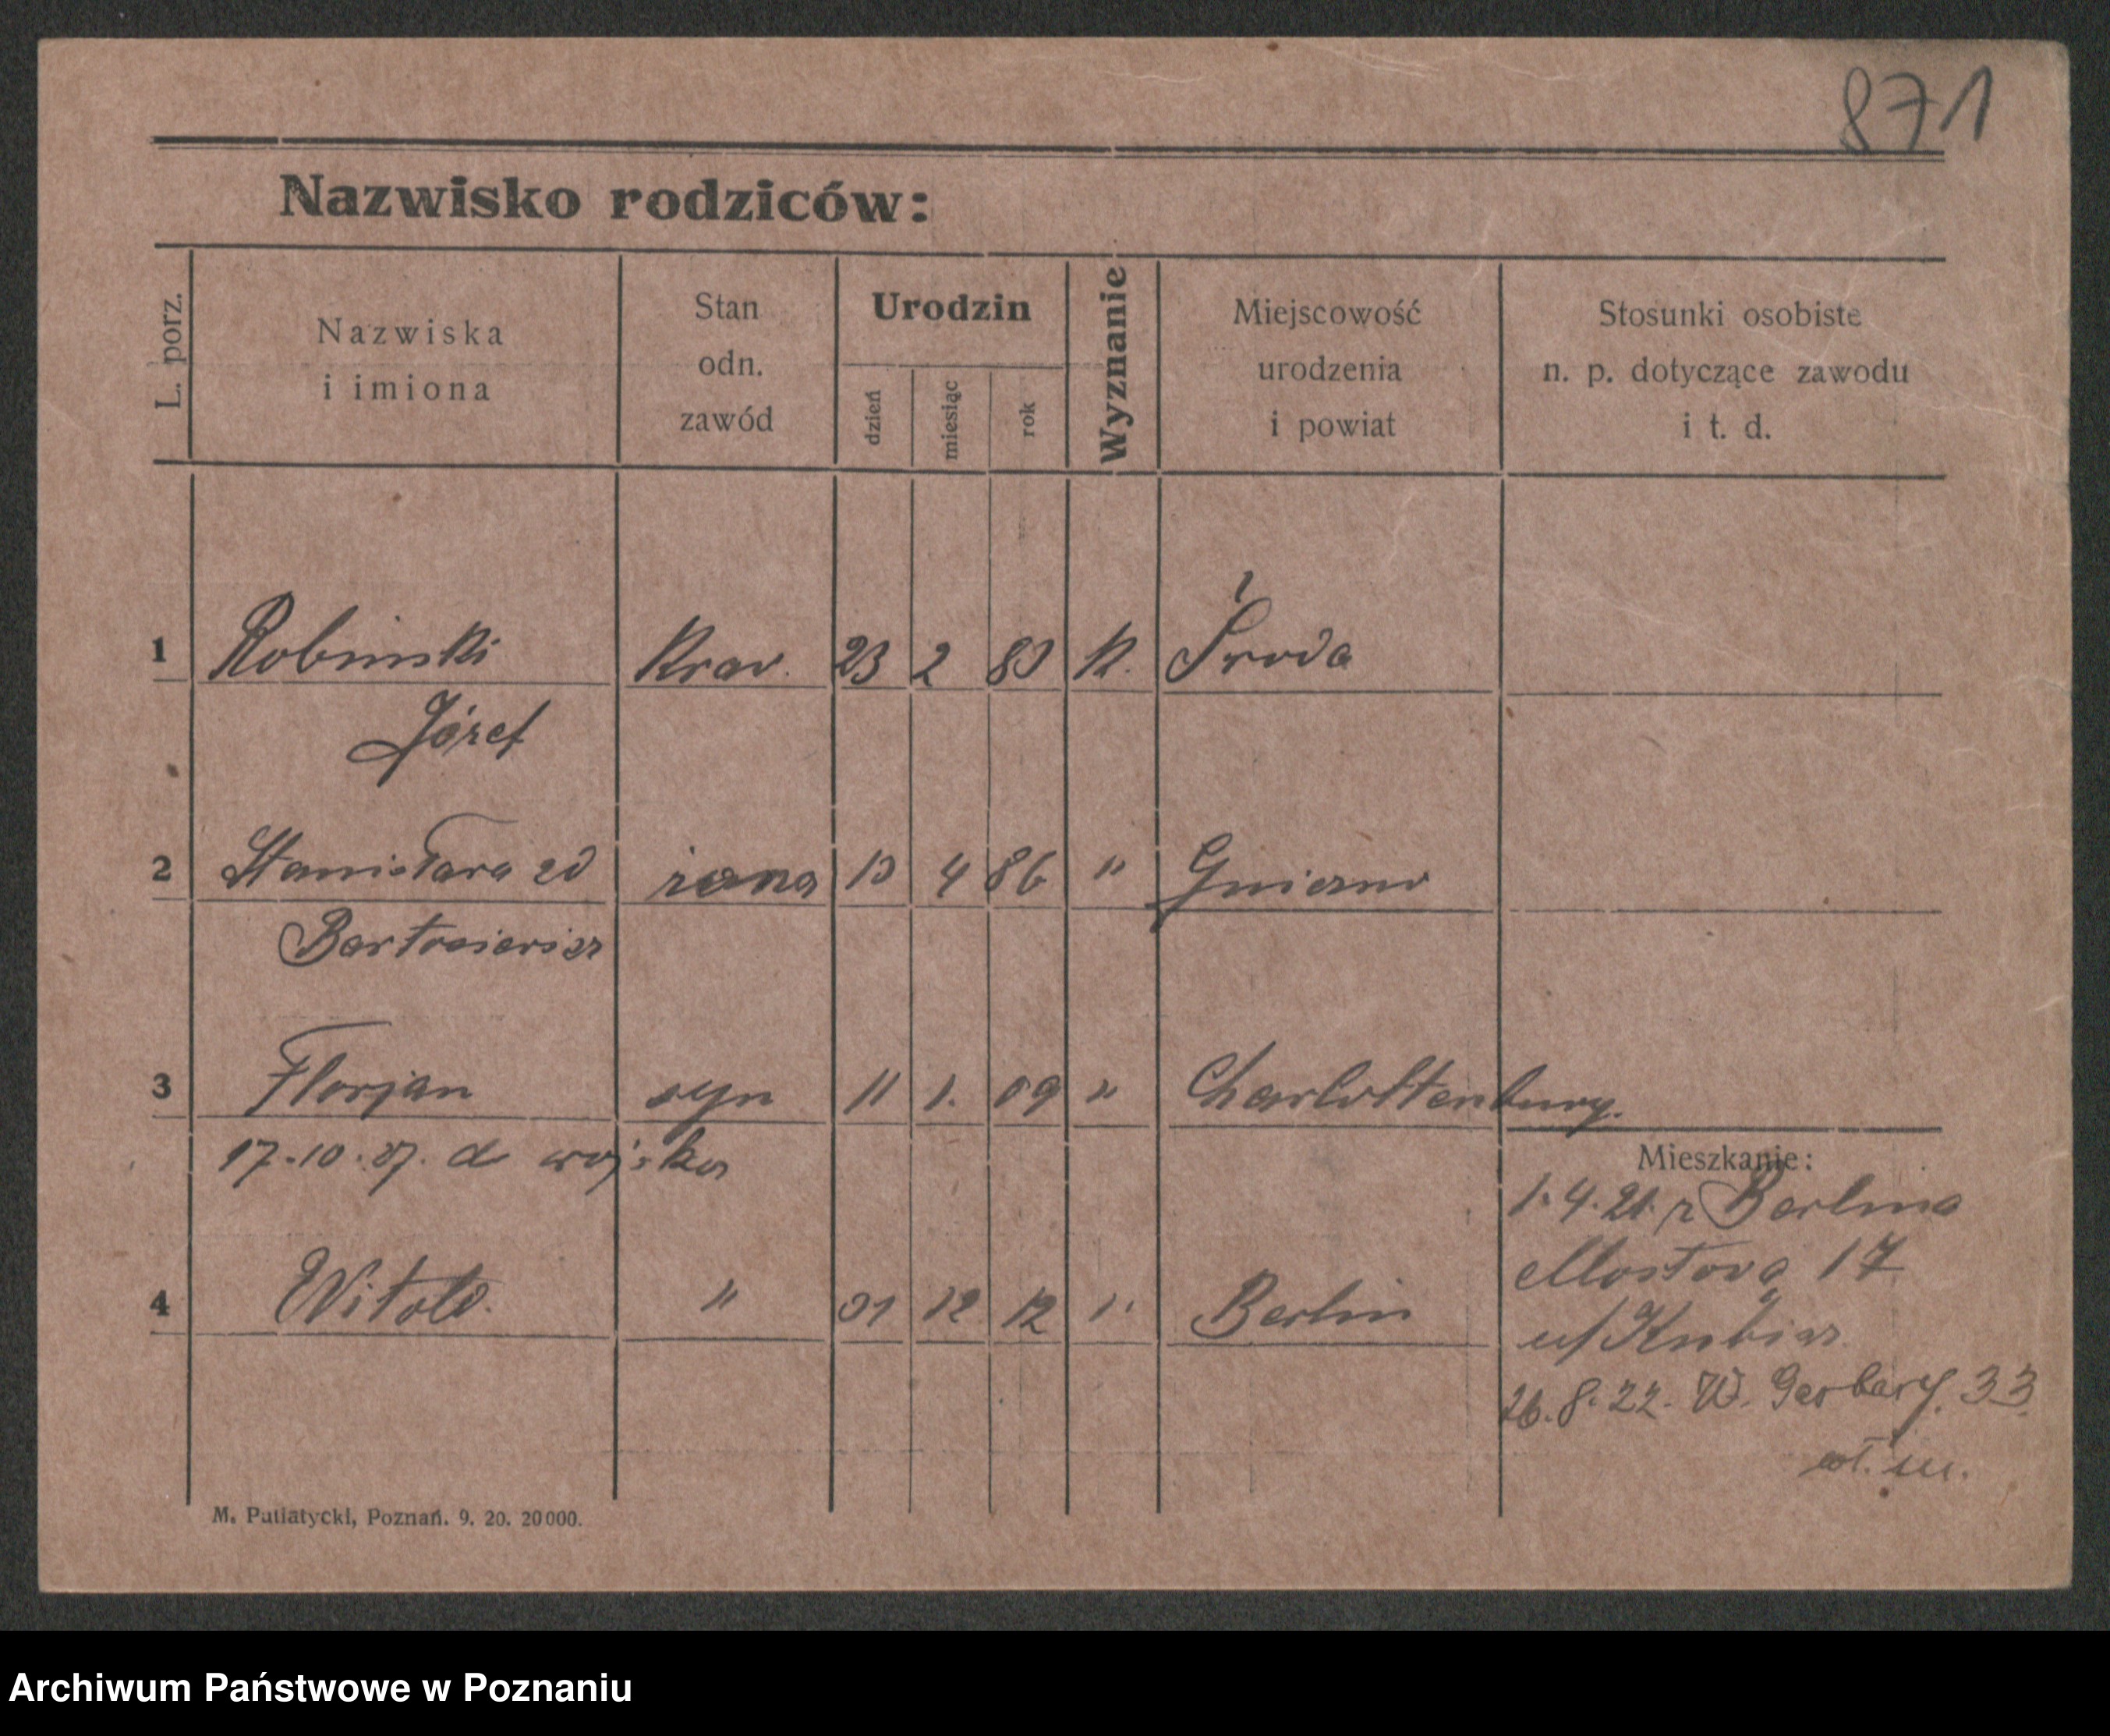 871
Nazwisko rodziców:
L. porz.
Nazwiska
i imiona
Stan
odn.
zawód
Urodzin
dzień
miesiąc
rok
Wyznanie
Miejscowość
urodzenia
i powiat
Stosunki osobiste
n. p. dotyczące zawodu
i t. d.
1 Robinski Kraw. 23 2 83 K. Środa
Józef
2 Stanisława zd żona 13 4 86 " Gniezno
3 Florjan syn 11 1. 09 " Charlottenburg.
17.10.37. do wojska
Mieszkanie:
1.4.21. z Berlina
Mostowa 17
4 Witold. " 01 12 12 " Berlin
u/ Kubiaz
26.8.22. W. Garbary. 33
wł. m.
M. Putiatycki, Poznań. 9. 20. 20000.
Archiwum Państwowe w Poznaniu